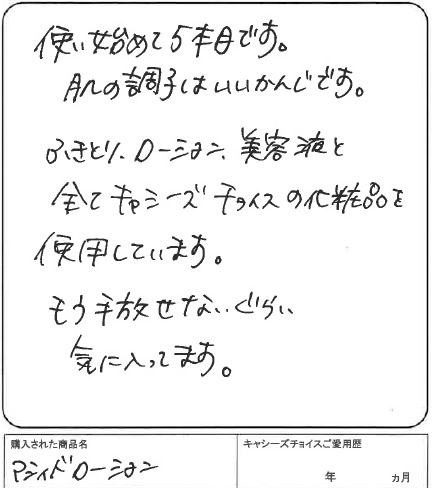 使い始めて5本目です。
肌の調子はいいかんじです。
ふきとり、ローション、美容液と
全てキャシーズチョイスの化粧品を
使用しています。
もう手放せないぐらい
気に入ってます。
購入された商品名
キャシーズチョイスご愛用歴
アシィドローション
年 ヵ月